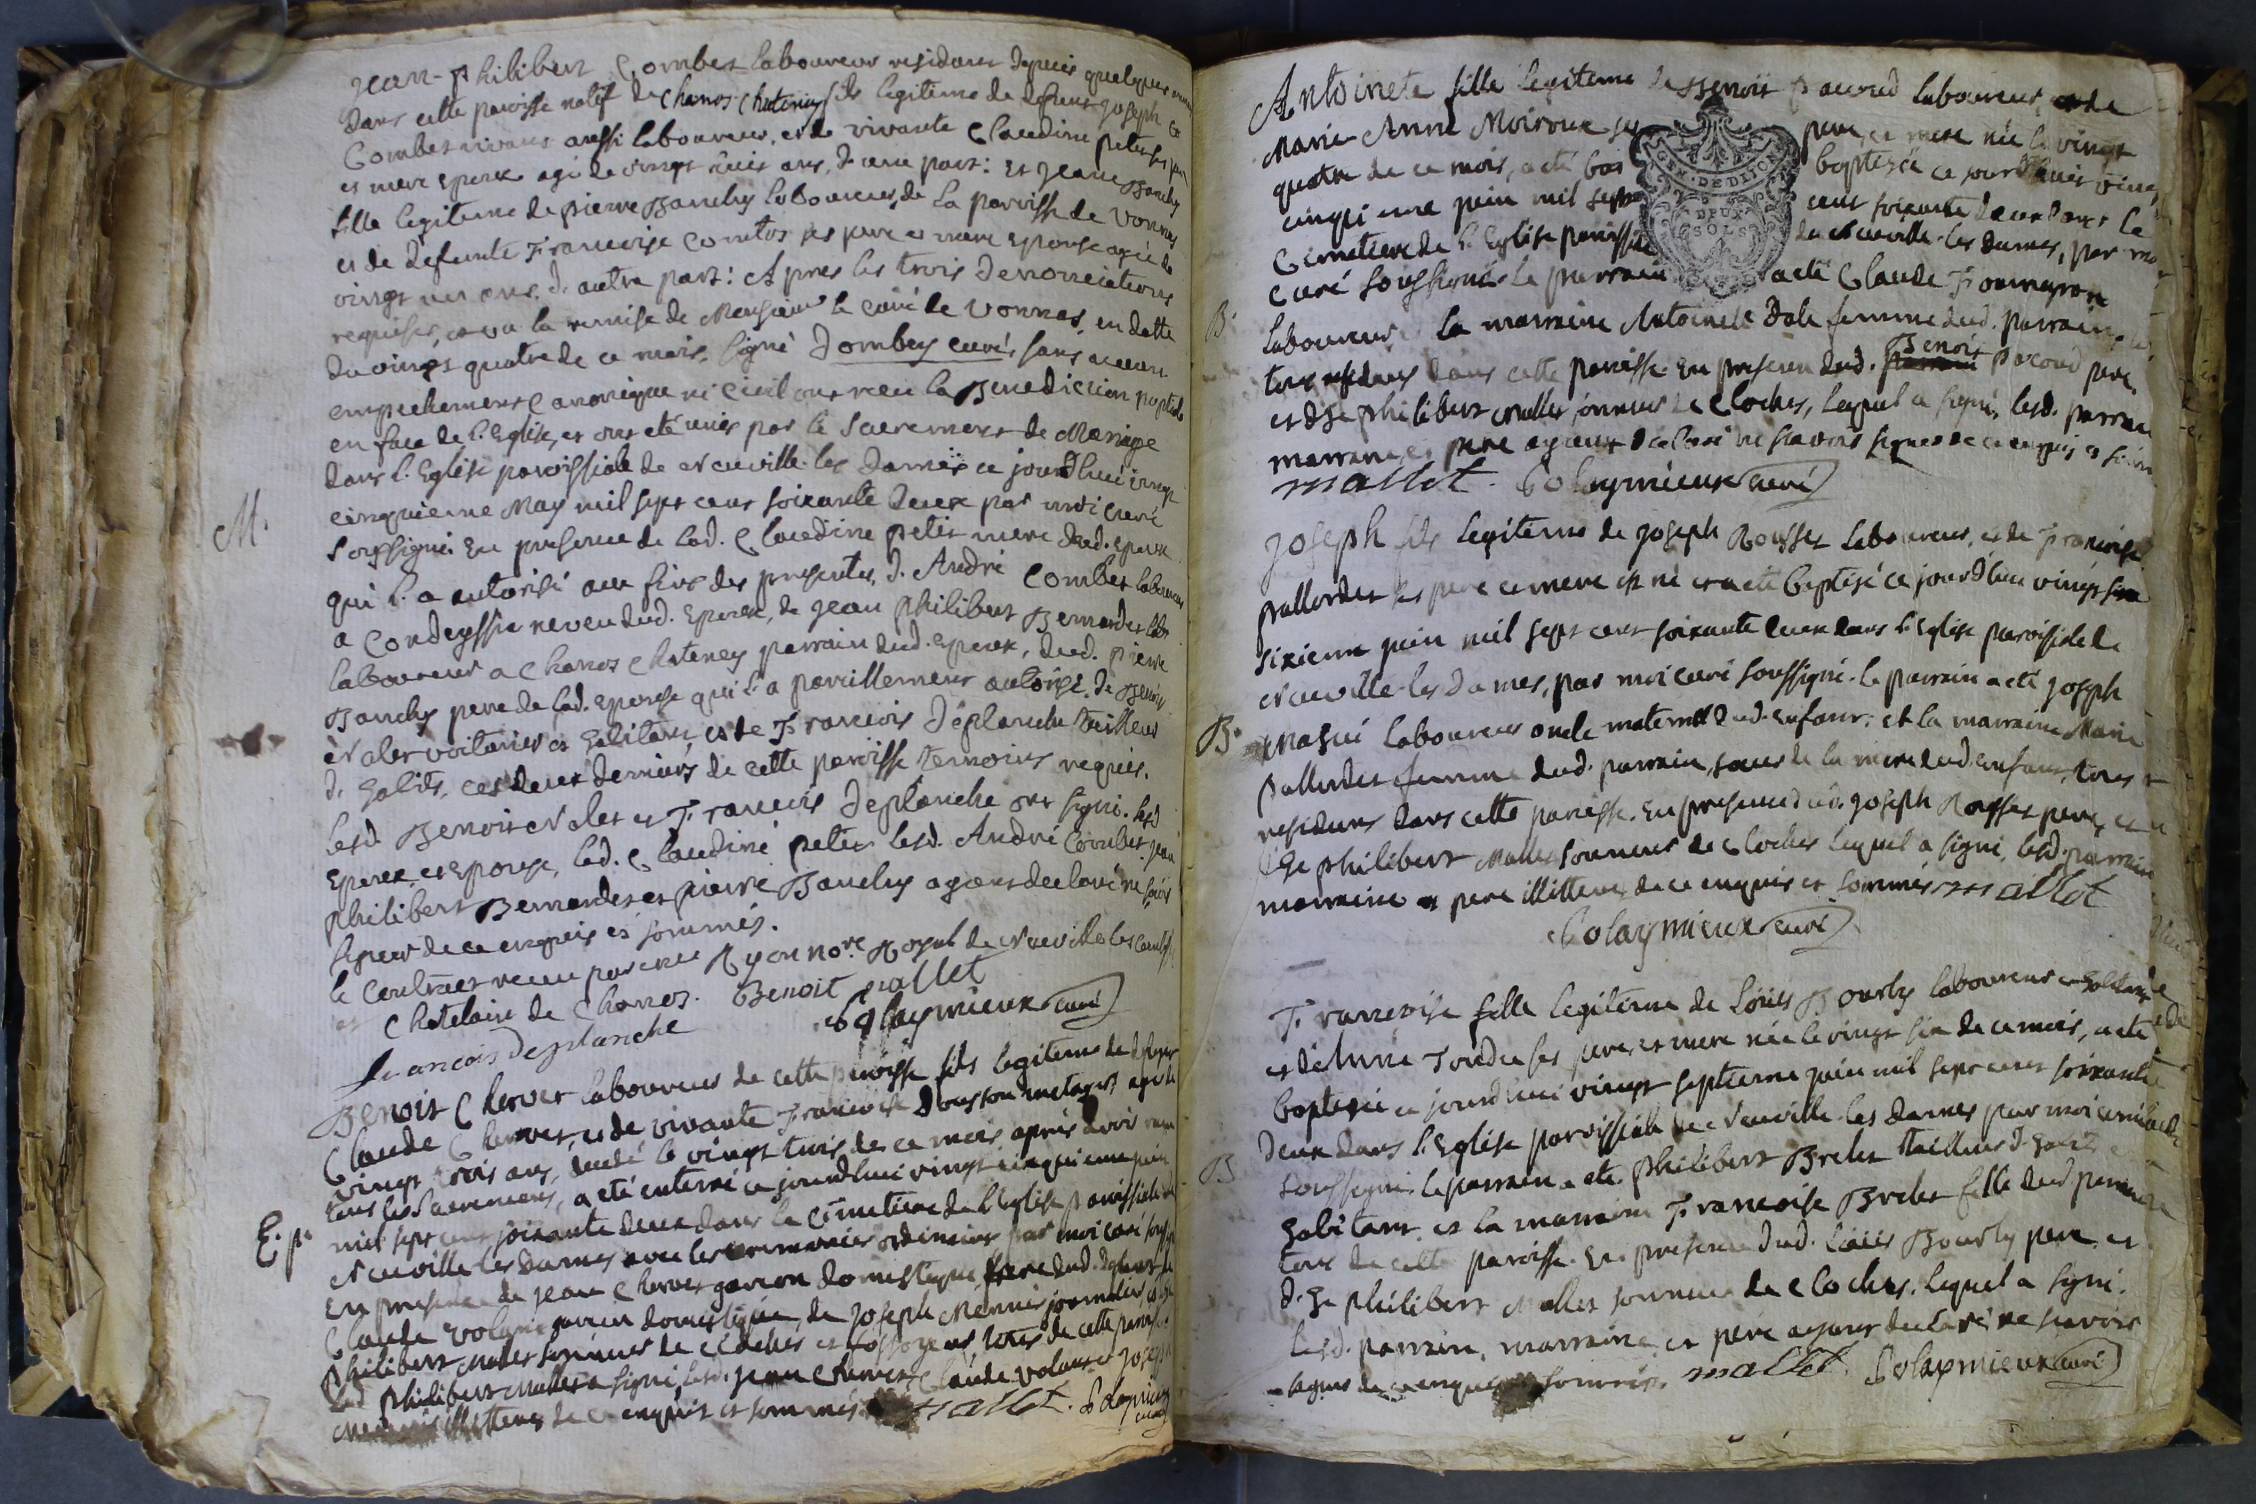 Jean-philibert Combet laboureur residant depuis quelques
dans cette paroisse natif de Chanos Chatenay fils legitime de defunt Joseph
Combet vivant aussi laboureur, et de vivante Claudine petit ses pere
et mere epoux agé de vingt huit ans, d'une part: Et Jeane Banchy
fille legitime de pierre Banchy laboureur, de la paroisse de Vonnas
et de defunte Francoise Comtos ses pere et mere Epouse agée de
vingt un ans, d'autre part: Apres les trois denonciations
requises, et vu la remise de Monsieur le curé de Vonnas, en datte
du vingt quatre de ce mois, signé Dombey curé, sans aucun
empechement canonique ni civil ont receu la Benediction nuptiale
en face de l'Eglise, et ont eté unis par le Sacrement de Mariage
dans l'Eglise paroissiale de Neuville les Dames ce jourd'hui vingt
M.
cinquieme May mil sept cent soixante deux par moi curé
soussigné. En presence de lad. Claudine petit mere dud. epoux
qui l'a autorisé aux fins des presentes, d'André Combet laboureur
a Condeyssia neveu dud. Epoux, de Jean philibert Bernardet
laboureur a Chanos Chatenay parrain dud. epoux, dud. pierre
Banchy pere de lad. epouse qui l'a pareillement autorisé, de Benoit
Nalet voiturier et habitant, et de Francois Déplanche tailleur
d'habits, ces deux derniers de cette paroisse temoins requis.
lesd. Benoit Nalet et Francois Deplanche ont signé. lesd
Epoux, et Epouse, lad. Claudine petit lesd. André Combet, Jean
philibert Bernardet et pierre Banchy ayant declaré ne savoir
signer de ce enquis et sommés.
le contract receu par me Ryon nore Royal de Neuville les
et Chatelain de Chanos. Benoit nallet
francois Deplanche Colaymieux curé
Benoit Chervet laboureur de cette paroisse fils legitime de defunt
Claude Chervet, et de vivante Francoise agé de
vingt trois ans, decedé le vingt trois de ce mois, aprés avoir receu
tous les Sacremens, a eté enterré ce jourd'hui vingt cinquieme juin
E. pe
mil sept cent soixante deux dans le cimetiere de l'Eglise paroissiale de
Neuville les Dames avec les ceremonies ordinaires par moi curé soussigné
En presence de Jean Chervet garcon domestique frere dud. defunt de
Claude Volant garcon domestique, de Joseph Menuis journalier, et de
philibert Mallet sonneur de cloches et fossoyeur, tous de cette paroisse.
led philibert Mallet a signé, lesd. Jean Chervet, Claude volant et Joseph
illitterez de ce enquis et sommés mallet. Colaymieux
curé
Antoinete fille legitime de Benoit pacoud laboureur, et de
Marie Anne Moiroux ses pere et mere née le vingt
quatre de ce mois, a eté baptizée ce jourd'hui vingt
cinquieme juin mil sept cent soixante deux dans le
Cimetiere de l'Eglise paroissiale de Neuville-les dames, par moi
Curé soussigné. Le parrain a eté Claude Fromageon
GEN. DE LION
DEUX
SOLS
B.
laboureur la marraine Antoinete Dale femme dud. parrain
tous residans dans cette paroisse. En presence dud. Benoit pacoud pere,
et de philibert mallet sonneur de cloches, lequel a signé, lesd. parrain
marraine et pere ayant declaré ne savoir signer de ce enquis et sommés
mallet. Colaymieux curé
Joseph fils legitime de Joseph Rousset laboureur, et de Francoise
pallordet ses pere et mere est né et a eté baptisé ce jourd'hui vingt
sixieme juin mil sept cent soixante deux dans l'Eglise paroissiale de
Neuville-les Dames, par moi curé soussigné. Le parrain a eté Joseph
B.
laboureur oncle maternel dud. enfant; et la marraine Marie
pallordet femme dud. parrain, soeur de la mere dud enfant, tous
residans dans cette paroisse. En presence dud. Joseph Rousset pere, et
de philibert Mallet sonneur de cloches lequel a signé, lesd. parrain
marraine et pere illitterez de ce enquis et sommés mallet
Colaymieux curé
Francoise fille legitime de Loüis Bourly laboureur et habitant
et d'Anne Tondu ses pere, et mere née le vingt six de ce mois, a eté
baptizée ce jourd'hui vingt septieme juin mil sept cent soixante
deux dans l'Eglise paroissiale de Neuville-les Dames par moi curé
B
soussigné. le parrain a eté philibert Brelet tailleur d'habits
habitant, et la marraine Francoise Brelet fille dud parrain
tous de cette paroisse. En presence dud. Loüis Bourly pere et
de philibert Mallet sonneur de cloches. lequel a signé.
lesd. parrain, marraine, et pere ayant declaré ne savoir
signer de ce enquis et sommés. mallet. Colaymieux curé